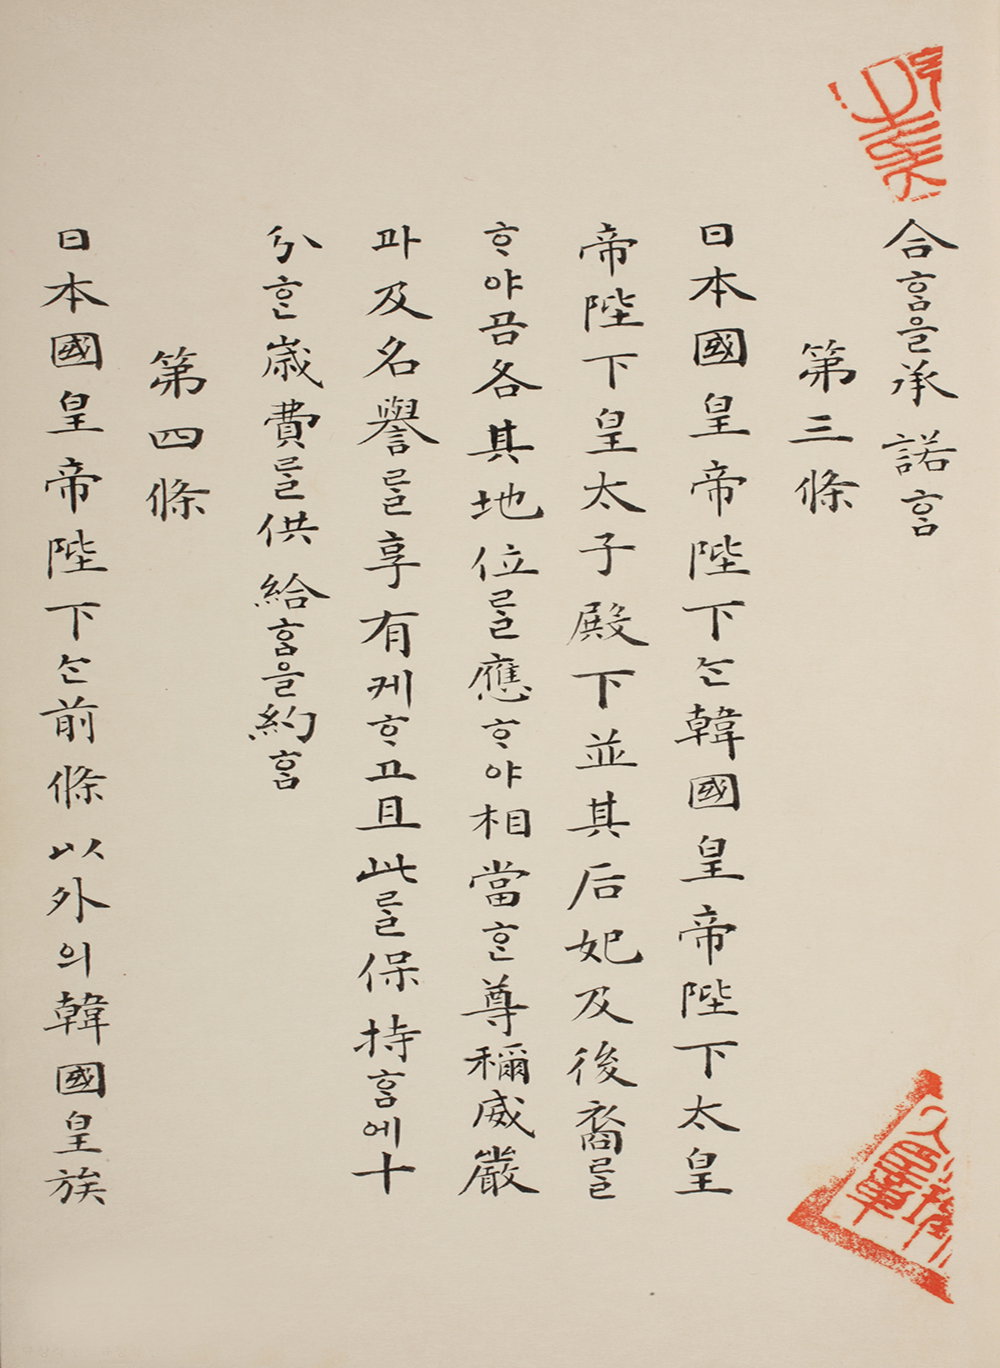 合홈을承諾홈
第三條
日本國皇帝陛下는韓國皇帝陛下太皇
帝陛下皇太子殿下並其后妃及後裔를
ᄒᆞ야곰各其地位를應ᄒᆞ야相當ᄒᆞᆫ尊稱威嚴
과及名譽를享有케ᄒᆞ고且此를保持홈에十
分ᄒᆞᆫ歲費를供給홈을約홈
第四條
日本國皇帝陛下는前條以外의韓國皇族